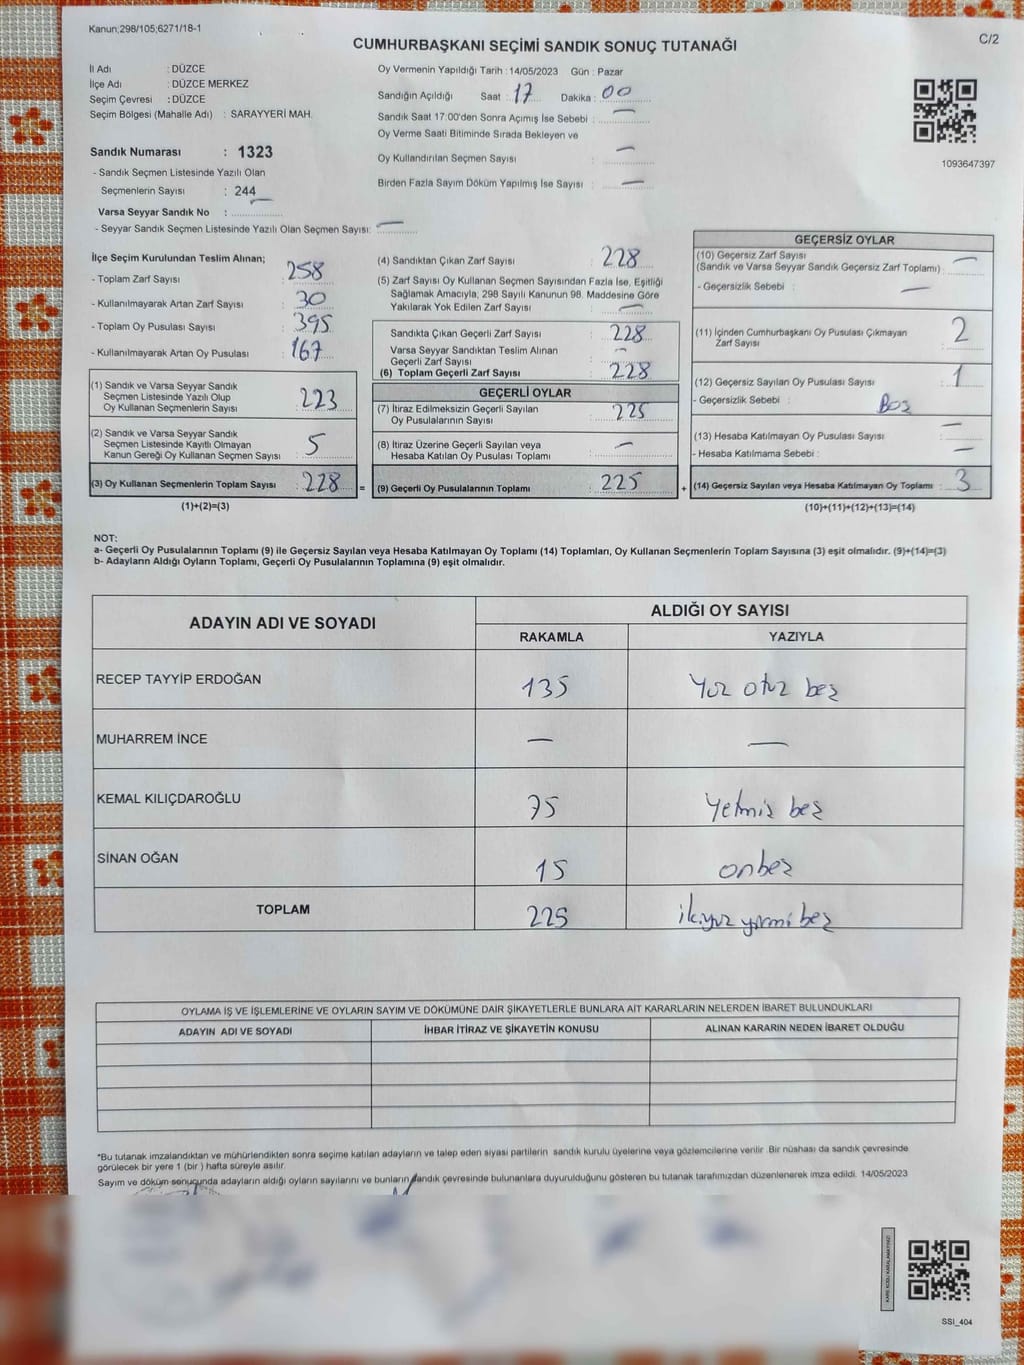 Kanun;298/105;6271/18-1
C/2
CUMHURBAŞKANI SEÇİMİ SANDIK SONUÇ TUTANAĞI
İl Adı : DÜZCE
İlçe Adı : DÜZCE MERKEZ
Seçim Çevresi : DÜZCE
Seçim Bölgesi (Mahalle Adı) : SARAYYERİ MAH.
Sandık Numarası : 1323
- Sandık Seçmen Listesinde Yazılı Olan
Seçmenlerin Sayısı : 244
Varsa Seyyar Sandık No :
- Seyyar Sandık Seçmen Listesinde Yazılı Olan Seçmen Sayısı: —
Oy Vermenin Yapıldığı Tarih : 14/05/2023 Gün : Pazar
Sandığın Açıldığı Saat : 17 Dakika : 00
Sandık Saat 17:00'den Sonra Açımış İse Sebebi : —
Oy Verme Saati Bitiminde Sırada Bekleyen ve
Oy Kullandırılan Seçmen Sayısı : —
Birden Fazla Sayım Döküm Yapılmış İse Sayısı : —
1093647397
İlçe Seçim Kurulundan Teslim Alınan;
- Toplam Zarf Sayısı : 258
- Kullanılmayarak Artan Zarf Sayısı : 30
- Toplam Oy Pusulası Sayısı : 395
- Kullanılmayarak Artan Oy Pusulası : 167
(1) Sandık ve Varsa Seyyar Sandık
Seçmen Listesinde Yazılı Olup
Oy Kullanan Seçmenlerin Sayısı : 223
(2) Sandık ve Varsa Seyyar Sandık
Seçmen Listesinde Kayıtlı Olmayan
Kanun Gereği Oy Kullanan Seçmen Sayısı : 5
(3) Oy Kullanan Seçmenlerin Toplam Sayısı : 228 =
(1)+(2)=(3)
(4) Sandıktan Çıkan Zarf Sayısı : 228
(5) Zarf Sayısı Oy Kullanan Seçmen Sayısından Fazla İse, Eşitliği
Sağlamak Amacıyla, 298 Sayılı Kanunun 98. Maddesine Göre
Yakılarak Yok Edilen Zarf Sayısı : —
Sandıkta Çıkan Geçerli Zarf Sayısı : 228
Varsa Seyyar Sandıktan Teslim Alınan
Geçerli Zarf Sayısı : —
(6) Toplam Geçerli Zarf Sayısı : 228
GEÇERLİ OYLAR
(7) İtiraz Edilmeksizin Geçerli Sayılan
Oy Pusulalarının Sayısı : 225
(8) İtiraz Üzerine Geçerli Sayılan veya
Hesaba Katılan Oy Pusulası Toplamı : —
(9) Geçerli Oy Pusulalarının Toplamı : 225 +
GEÇERSİZ OYLAR
(10) Geçersiz Zarf Sayısı
(Sandık ve Varsa Seyyar Sandık Geçersiz Zarf Toplamı) : —
- Geçersizlik Sebebi : —
(11) İçinden Cumhurbaşkanı Oy Pusulası Çıkmayan
Zarf Sayısı : 2
(12) Geçersiz Sayılan Oy Pusulası Sayısı : 1
- Geçersizlik Sebebi : Boş
(13) Hesaba Katılmayan Oy Pusulası Sayısı : —
- Hesaba Katılmama Sebebi : —
(14) Geçersiz Sayılan veya Hesaba Katılmayan Oy Toplamı : 3
(10)+(11)+(12)+(13)=(14)
NOT:
a- Geçerli Oy Pusulalarının Toplamı (9) ile Geçersiz Sayılan veya Hesaba Katılmayan Oy Toplamı (14) Toplamları, Oy Kullanan Seçmenlerin Toplam Sayısına (3) eşit olmalıdır. (9)+(14)=(3)
b- Adayların Aldığı Oyların Toplamı, Geçerli Oy Pusulalarının Toplamına (9) eşit olmalıdır.
ADAYIN ADI VE SOYADI ALDIĞI OY SAYISI
RAKAMLA YAZIYLA
RECEP TAYYİP ERDOĞAN 135 Yüz otuz beş
MUHARREM İNCE — —
KEMAL KILIÇDAROĞLU 75 Yetmiş beş
SİNAN OĞAN 15 onbeş
TOPLAM 225 ikiyüz yirmi beş
OYLAMA İŞ VE İŞLEMLERİNE VE OYLARIN SAYIM VE DÖKÜMÜNE DAİR ŞİKAYETLERLE BUNLARA AİT KARARLARIN NELERDEN İBARET BULUNDUKLARI
ADAYIN ADI VE SOYADI İHBAR İTİRAZ VE ŞİKAYETİN KONUSU ALINAN KARARIN NEDEN İBARET OLDUĞU
*Bu tutanak imzalandıktan ve mühürlendikten sonra seçime katılan adayların ve talep eden siyasi partilerin sandık kurulu üyelerine veya gözlemcilerine verilir. Bir nüshası da sandık çevresinde
görülecek bir yere 1 (bir ) hafta süreyle asılır.
Sayım ve döküm sonucunda adayların aldığı oyların sayılarını ve bunların sandık çevresinde bulunanlara duyurulduğunu gösteren bu tutanak tarafımızdan düzenlenerek imza edildi. 14/05/2023
KARE KODU KARALAMAYINIZ!
SSI_404